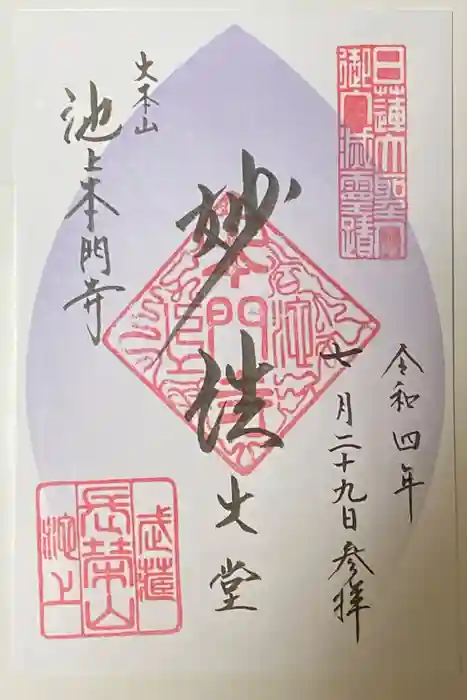 日蓮大聖人
御入滅霊蹟
令和四年
七月二十九日参拝
妙法
大堂
本門寺
大本山
池上本門寺
武蔵
長栄山
池上